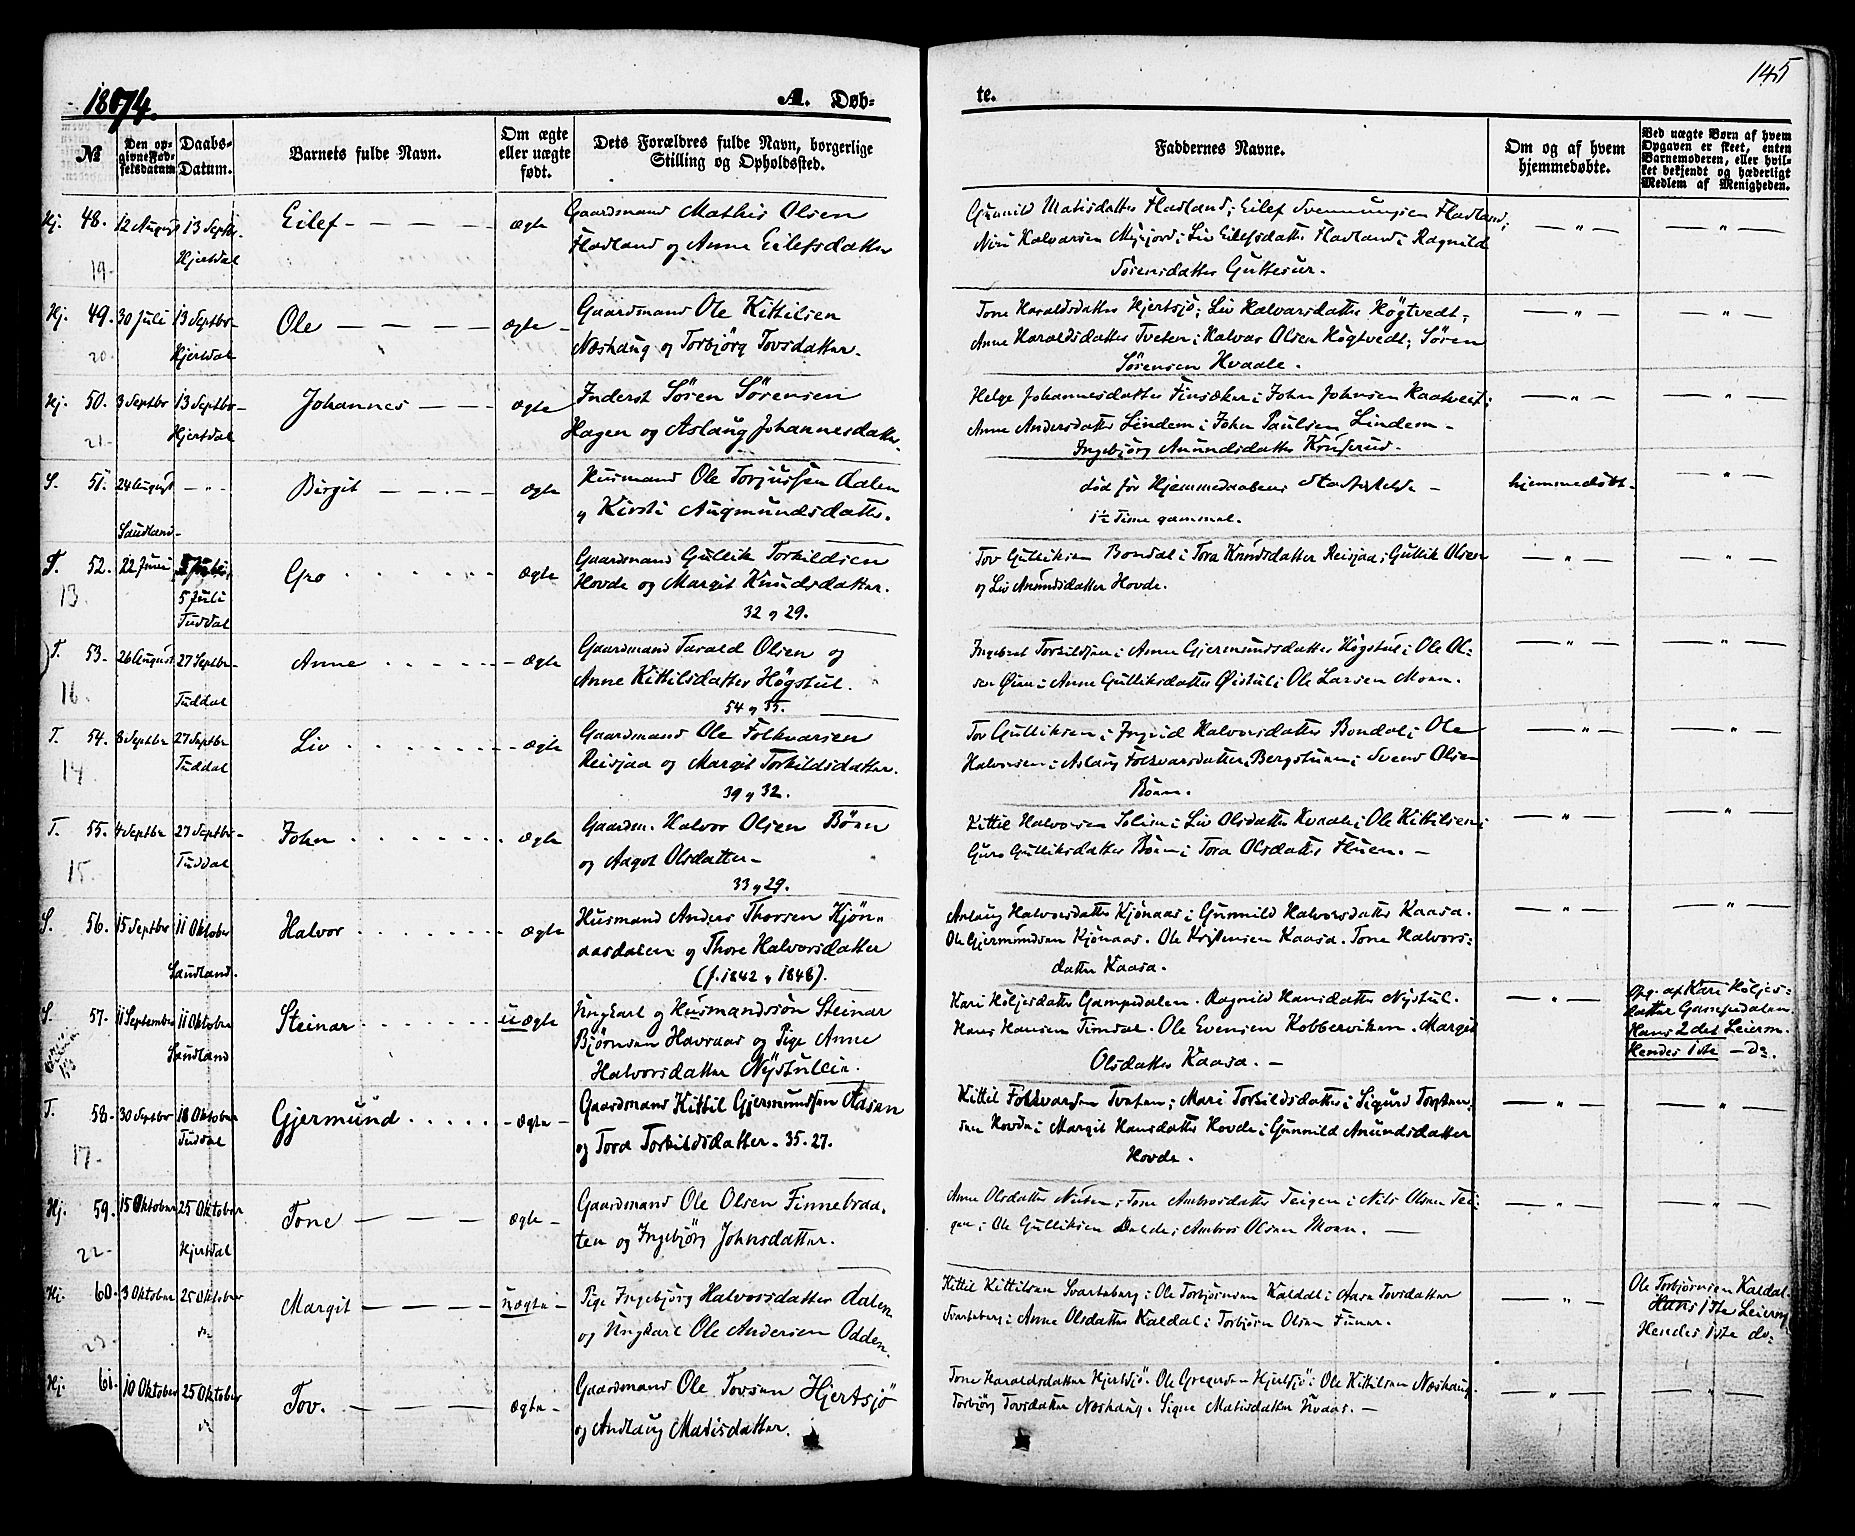 1874.
A. Døb-
te.
145
№
Den op-
givne Fød-
selsdatum
Daabs-
Datum.
Barnets fulde Navn.
Om ægte
eller uægte
født.
Dets Forældres fulde Navn, borgerlige
Stilling og Opholdssted.
Faddernes Navne.
Om og af hvem
hjemmedøbte.
Ved uægte Børn af hvem
Opgaven er skeet, enten
Barnemoderen, eller hvil-
ket bekjendt og hæderligt
Medlem af Menigheden.
Hj. 48. 12 August 13 Septb. Eilef ægte Gaardmand Mathis Olsen
Flodland og Anne Eilefsdatter
Hjertdal
19.
Gunnild Matisdatter Flodland; Eilef Svennungsen Flodland;
Halvorsen Liv Eilefsdatter Flodland; Ragnild
Sørensdatter Guttesur.
Hj. 49. 30 Juli 13 Septbr Ole ægte Gaardmand Ole Kittilsen
Næshaug og Torbjörg Tovsdatter.
Hjertdal
20.
Tone Haraldsdatter Hjertsjö; Liv Halvarsdatter Högtvedt;
Anne Haraldsdatter Tveten; Halvor Olsen Högtvedt; Sören
Sörensen Hvaale.
Hj. 50. 3 Septbr 13 Septbr Johannes ægte Inderst Sören Sörensen
Hagen og Aslaug Johannesdatter
Hjertdal
21.
Helge Johannesdatter John Johnsen
Anne Andersdatter Lindem; John Paulsen Lindem
Ingebjörg Amundsdatter
S. 51. 24 August Birgit ægte Husmand Ole Torjussen Dalen
og Kirsti Augmundsdatter.
Sauland
død før Hjemmedaabens
1½ Time gammel.
hjemmedøbt.
T. 52. 22 Juni 5 Juli Gro ægte Gaardmand Gullik Torkildsen
Hovde og Margit Knudsdatter.
32 og 29.
5 Juli
Tuddal
13.
Tov Gulliksen Bondal; Tora Knudsdatter Reisjaa; Gullik Olsen
og Liv Anundsdatter Hovde.
T. 53. 26 August 27 Septbr Anne ægte Gaardmand Tarald Olsen og
Anne Kittilsdatter Högstul.
54 og 35.
Tuddal
16.
Torkildsen; Anne Gjermundsdatter Högstul; Ole Ol-
sen Anne Gulliksdatter Øistul; Ole Larsen Moen.
T. 54. 8 Septbr 27 Septbr Liv ægte Gaardmand Ole Folkvarsen
Reisjaa og Margit Torkildsdatter.
39 og 32.
Tuddal
14.
Tov Gulliksen; Ingrid Halvorsdatter Bondal; Ole
Halvorsen; Aslaug Folkvarsdatter Bergstuen; Svend Olsen
Böen.
T. 55. 4 Septbr 27 Septbr John ægte Gaardm. Halvor Olsen Böen
og Aagot Olsdatter
33 og 29.
Tuddal
15.
Kittil Halvorsen Solem; Liv Olsdatter Kvaale; Ole Kittilsen;
Guro Gulliksdatter Böen; Tora Olsdatter
S. 56. 15 Septbr 11 Oktober Halvor ægte Husmand Anders Thorsen Kjön-
aasdalen og Thore Halvorsdatter
(f. 1842 og 1848).
Sauland.
Aslaug Halvorsdatter Kjönaas; Gunnild Halvorsdatter Kaasa.
Ole Gjermundsen Kjönaas. Ole Kristensen Kaasa. Tone Halvors-
datter Kaasa.
S. 57. 11 September 11 Oktober Steinar uægte Ungkarl og Husmandssön Steinar
Björnsen Havraas og Pige Anne
Halvorsdatter Nystulein.
Sauland
Kari Höljesdatter Gampedalen. Ragnild Hansdatter Nystul.
Hans Hansen Timdal. Ole Evensen Kobbervikem. Margit
Olsdatter Kaasa.
Opg. af Kari Höljes-
datter Gampedalen
Hans 2det Leierm.
Hendes 1ste Do.
T. 58. 30 Septbr 18 Oktober Gjermund ægte Gaardmand Kittil Gjermundsen Aasen
og Tora Torkildsdatter. 35. 27.
Tuddal
17.
Kittil Folkvarsen Tveten; Mari Torkildsdatter; Sigurd Torsten-
sen Hovde; Margit Hansdatter Hovde; Gunnild Anundsdatter
Hovde.
Hj. 59. 15 Oktober 25 Oktober Tone ægte Gaardmand Ole Olsen Finnebraa-
ten og Ingebjörg Johnsdatter.
Hjertdal
22.
Anne Olsdatter Tone Ambrosdatter Teigen; Nils Olsen Tei-
gen; Ole Gulliksen Ambros Olsen Moen.
Hj. 60. 3 Oktober 25 Oktober Margit uægte Pige Ingebjörg Halvorsdatter Dalen
og Ungkarl Ole Andersen Odden.
do
23.
Kittil Kittilsen Svarteberg; Ole Torbjörnsen Kaldal; Aase Tovsdatter
Svarteberg; Anne Olsdatter Kaldal; Torbjörn Olsen
Ole Torbjörnsen Kaldal
Hans 1ste Leierm.
Hendes 1ste do.
Hj. 61. 10 Oktober 25 Oktober Tov. ægte Gaardmand Ole Tovsen Hjertsjö
og Andlaug Matisdatter.
do
Tone Haraldsdatter Hjertsjö. Ole Gregersen Hjertsjö; Ole Kittilsen Næshaug.
Torbjörg Tovsdatter Næshaug. Signe Matisdatter